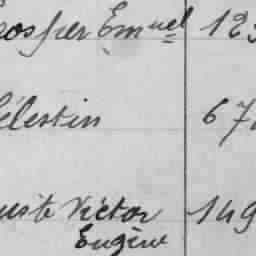 osper Emuel 123
élestin 67
uste Victor 149
Eugène